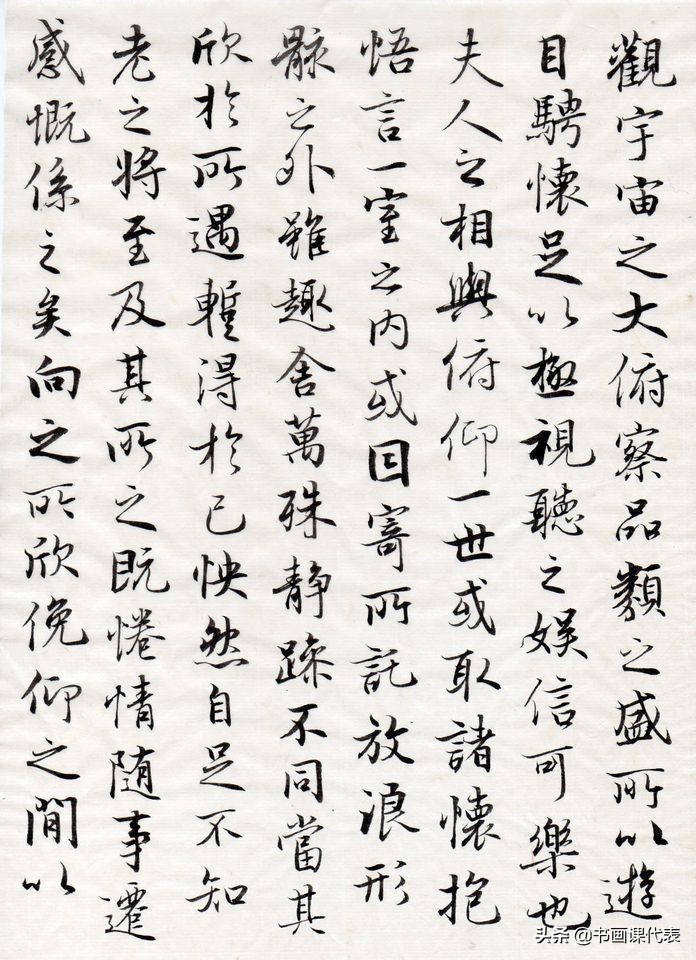 觀宇宙之大俯察品類之盛所以遊
目騁懷足以極視聽之娱信可樂也
夫人之相與俯仰一世或取諸懷抱
悟言一室之内或因寄所託放浪形
骸之外雖趣舍萬殊静躁不同當其
欣於所遇暫得於己怏然自足不知
老之將至及其所之既惓情随事遷
感慨係之矣向之所欣俛仰之間以
头条 @书画课代表